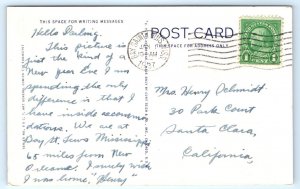 THIS SPACE FOR WRITING MESSAGES
Hello Darling.
This picture is
just the kind of a
New year Eve I am
spending the only
difference is that I
have inside accomo-
dations. We are at
Bay St. Louis Mississippi
65 miles from New
Orleans. I surely wish
I was home.
POST CARD
THIS SPACE FOR ADDRESS ONLY
JAN
1937
1 CENT 1
Mrs Henry
30 Park Court
Santa Clara,
California.